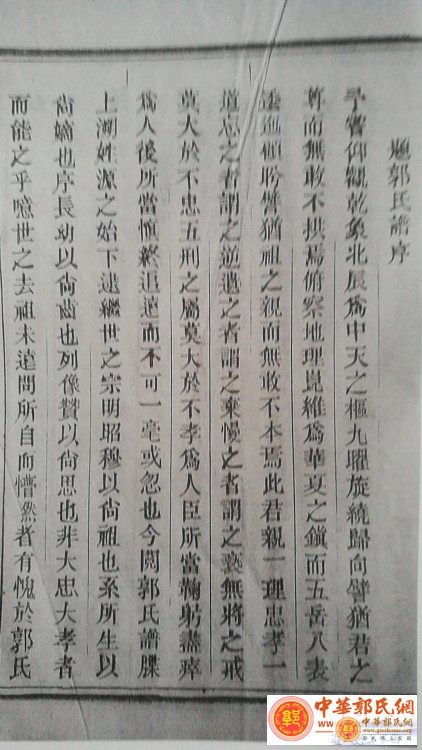 題郭氏譜序
予嘗仰觀乾象北辰爲中天之樞九曜旋繞歸向譬猶君之
尊而無敢不拱焉俯察地理崑維爲華夏之鎮而五岳八表
逶迤傾盻譬猶祖之親而無敢不本焉此君親一理忠孝一
道忘之者謂之逆遺之者謂之棄慢之者謂之褻無將之戒
莫大於不忠五刑之屬莫大於不孝爲人臣所當鞠躬盡瘁
爲人後所當愼終追遠而不可一毫或忽也今閱郭氏譜牒
上溯姓源之始下逮繼世之宗明昭穆以尙祖也系所生以
尙嫡也序長幼以尙齒也列像贊以尙思也非大忠大孝者
而能之乎噫世之去祖未遠問所自而懵然者有愧於郭氏
中華郭氏網
中華郭氏網
www.guoshome.org